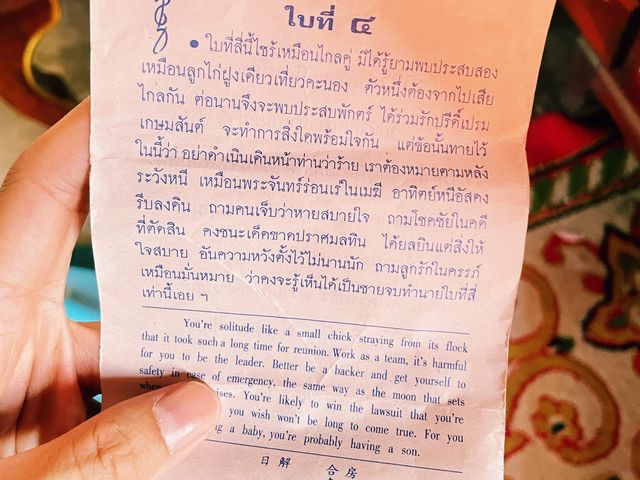 ใบที่ ๔
• ใบที่สี่นี้ไซร้เหมือนไกลคู่ มิได้รู้ยามพบประสบสอง
เหมือนลูกไก่ฝูงเดียวเที่ยวคะนอง ตัวหนึ่งต้องจากไปเสีย
ไกลกัน ต่อนานจึงจะพบประสบพักตร์ ได้ร่วมรักปรีดิ์เปรม
เกษมสันต์ จะทำการสิ่งใดพร้อมใจกัน แต่ข้อนั้นทายไว้
ในนี้ว่า อย่าดำเนินเดินหน้าท่านว่าร้าย เราต้องหมายตามหลัง
ระวังหนี เหมือนพระจันทร์ร่อนเร่ในเมฆี อาทิตย์หนีอัสดง
รีบลงดิน ถามคนเจ็บว่าหายสบายใจ ถามโชคชัยในคดี
ที่ตัดสิน คงชนะเด็ดขาดปราศมลทิน ได้ยลยินแต่สิ่งให้
ใจสบาย อันความหวังตั้งไว้ไม่นานนัก ถามลูกรักในครรภ์
เหมือนมั่นหมาย ว่าคงจะรู้เห็นได้เป็นชายจบทำนายใบที่สี่
เท่านี้เอย ฯ
You're solitude like a small chick straying from its flock
that it took such a long time for reunion. Work as a team, it's harmful
for you to be the leader. Better be a backer and get yourself to
safety in case of emergency, the same way as the moon that sets
when ises. You're likely to win the lawsuit that you're
you wish won't be long to come true. For you
ng a baby, you're probably having a son.
日解 合房